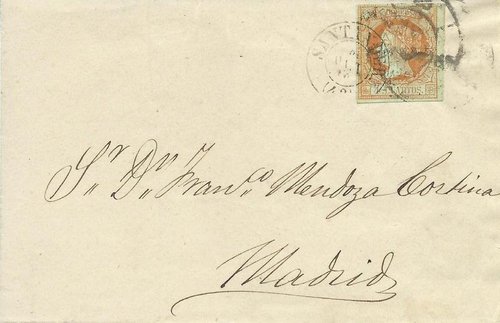 CUARTOS
Sr. Dn. Franco. Mendoza Cortina
Madrid